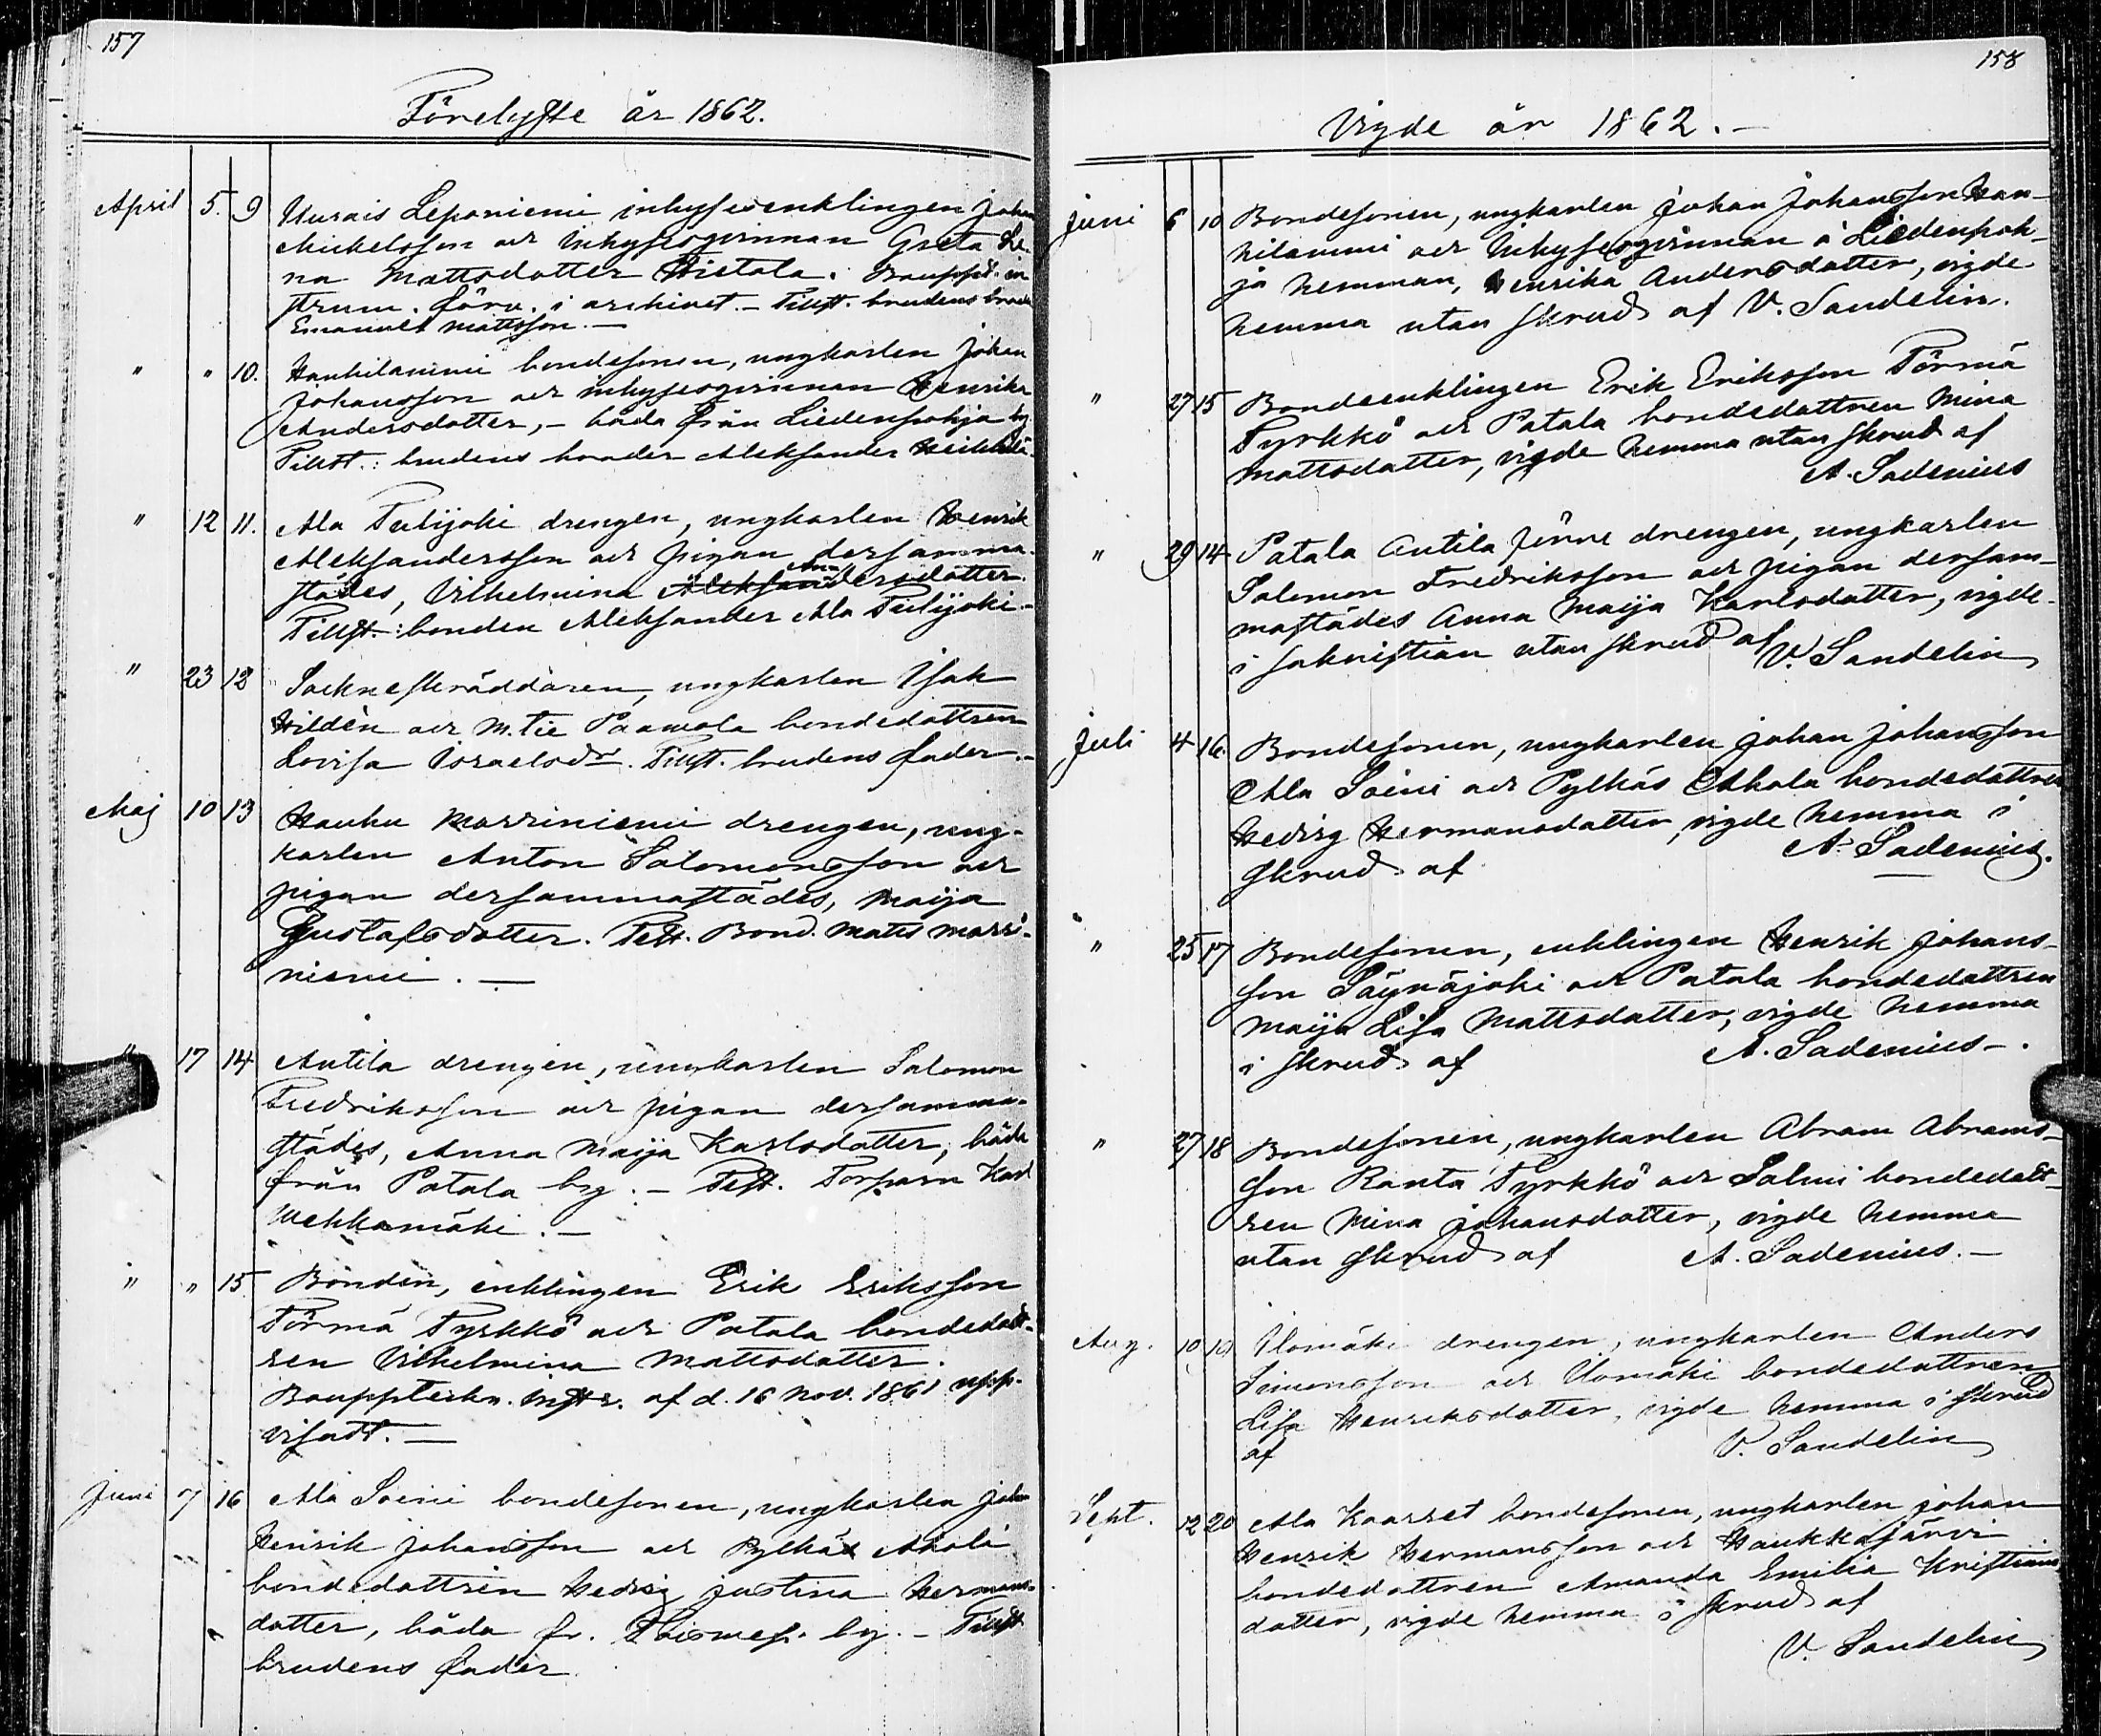 157
Förelyste år 1862.
April 5. 9 Uurais Leponiemi inhysesenklingen Johan
Mickelsson och inhysesqvinnan Greta Le-
na Mattsdotter Hietala. Bouppt. in
strum. förv. i archivet. – Tillst. brudens broder
Emanuel Mattsson. –
" " 10. Hankilammi bondesonen, ungkarlen Johan
Johansson och inhysesqvinnan Henrika
Andersdotter, – båda från Liedenpohja by
Tillst.: brudens broder Aleksander
" 12 11. Ala Teilijoki drengen, ungkarlen Henrik
Aleksandersson och pigan dersamma-
städes, Vilhelmina Aleksandersdotter
Tillst.: bonden Aleksander Ala Teilijoki –
" 23 12 Sockneskräddaren, ungkarlen Isak
Hildén och M.tie Paavola bondedottren
Lovisa Israelsdr. Tillst. brudens fader. –
Maj 10 13 Hauhu Marriniemi drengen, ung-
karlen Anton Salomonsson och
pigan dersammastädes, Maija
Gustafsdotter. Test. Bond. Matts Marri-
niemi. –
" 17 14 Antila drengen, ungkarlen Salomon
Fredriksson och pigan dersamma-
städes, Anna Maija Karlsdotter, båda
från Patala by. – Test. Torparn Karl
Wehkamäki. –
" " 15 Bonden, enklingen Erik Eriksson
Törmä Tyrkkö och Patala bondedott-
ren Vilhelmina Mattsdotter.
Bouppteckn. instr. af d. 16 Nov. 1861 upp-
visadt. –
Juni 7 16 Ala Soini bondesonen, ungkarlen Joh
Henrik Johansson och Pylkäs Ahola
bondedottren Hedvig Justina Hermans-
dotter, båda fr. by. – Tillst
brudens fader
158
Vigde år 1862. –
Juni 6 10 Bondesonen, ungkarlen Johan Johansson Han-
kilammi och Inhysesqvinnan å Liedenpoh-
ja hemman, Henrika Andersdotter, vigde
hemma utan skrud af V. Sandelin.
" 27 15 Bondeenklingen Erik Eriksson Törmä
Tyrkkö och Patala bondedottren Mina
Mattsdotter, vigde hemma utan skrud af
A. Sadenius
" 29 14 Patala Antila förre drengen, ungkarlen
Salomon Fredriksson och pigan dersam-
mastädes Anna Maija Karlsdotter, vigde
i sakristian utan skrud af
V. Sandelin
Juli 4 16. Bondesonen, ungkarlen Johan Johansson
Ala Soini och Pylkäs Ahola bondedottren
Hedvig Hermansdotter, vigde hemma i
skrud af A. Sadenius.
" 25 17 Bondesonen, enklingen Henrik Johans-
son Säynäjoki och Patala bondedottren
Maija Lisa Mattsdotter, vigde hemma
i skrud af A. Sadenius –.
" 27 18 Bondesonen, ungkarlen Abram Abrams-
son Ranta Tyrkkö och Salmi bondedott-
ren Mina Johansdotter, vigde hemma
utan skrud af A. Sadenius. –
Aug. 10 19 Ulomäki drengen, ungkarlen Anders
Simonsson och Ulomäki bondedottren
Lisa Henriksdotter, vigde hemma i skrud
af V. Sandelin
Sept. 12 20 Ala Kaarret bondesonen, ungkarlen Johan
Henrik Hermansson och Haukkajärvi
bondedottren Amanda Emilia Kristians
dotter, vigde hemma i skrud af
V. Sandelin